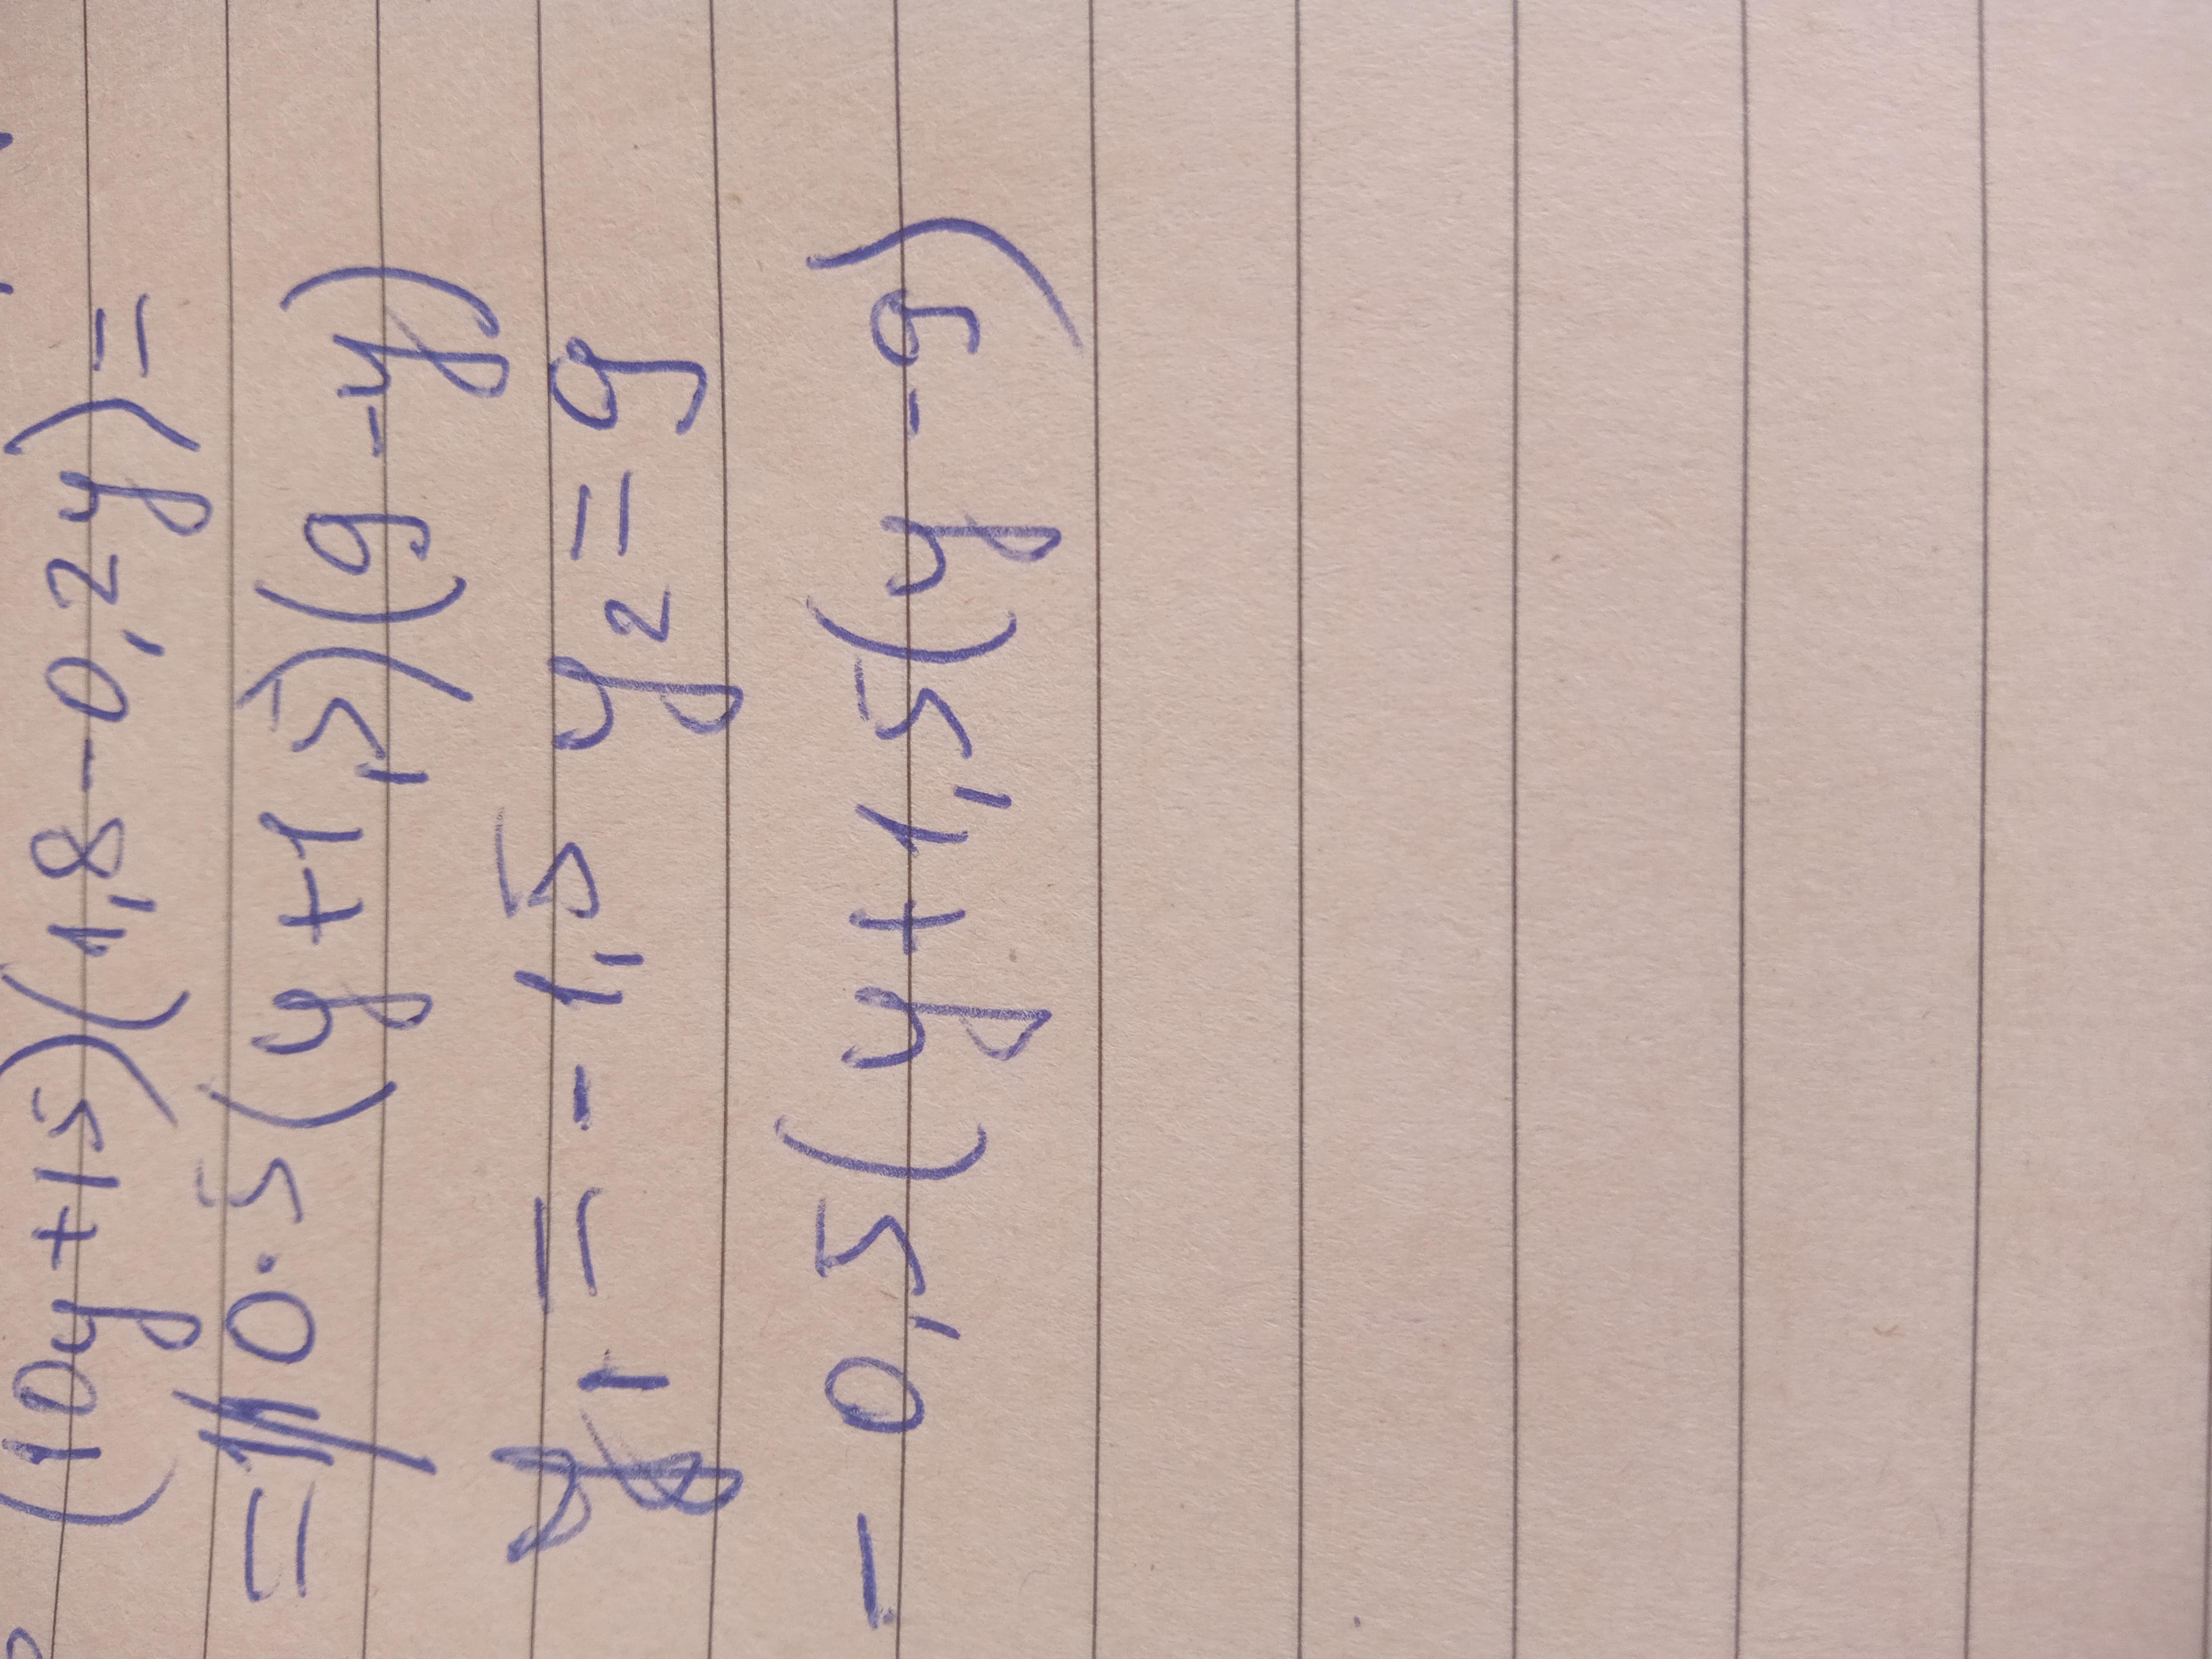 (10y+15)(1,8-0,2y)=
=10·5(y+1,5)(9-y)
y₁=-1,5 y₂=9
-0,5(y+1,5(y-9)